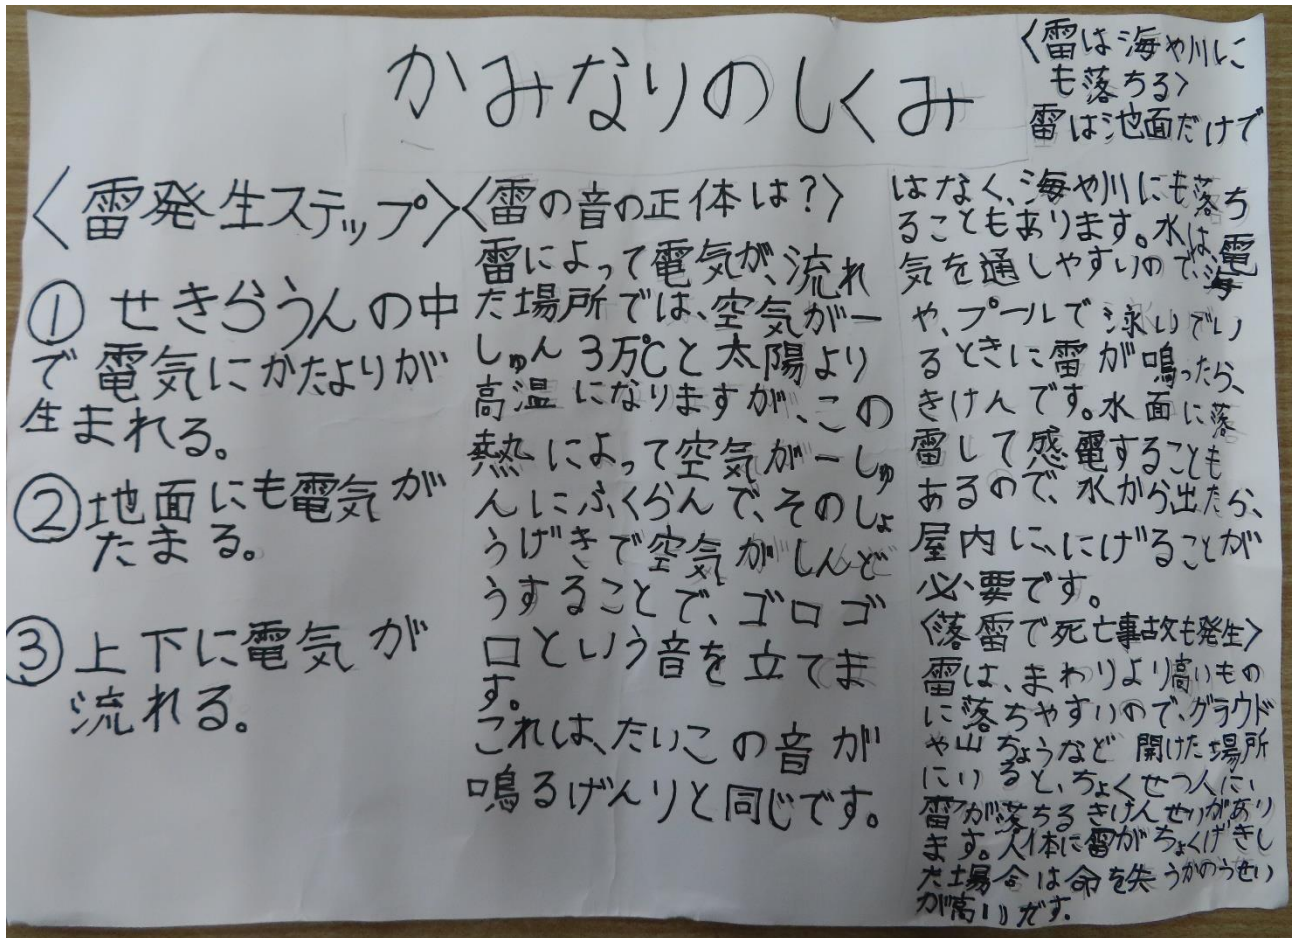 かみなりのしくみ
〈雷発生ステップ〉
① せきらうんの中
で電気にかたよりが
生まれる。
② 地面にも電気が
たまる。
③ 上下に電気が
流れる。
〈雷の音の正体は？〉
雷によって電気が、流れ
た場所では、空気が一
しゅん3万℃と太陽より
高温になりますが、この
熱によって空気が一しゅ
んにふくらんで、そのしょ
うげきで空気がしんど
うすることで、ゴロゴ
ロという音を立てま
す。
これは、たいこの音が
鳴るげんりと同じです。
〈雷は海や川に
も落ちる〉
雷は地面だけで
はなく、海や川にも落ち
ることもあります。水は、電
気を通しやすいので、海
や、プールで泳いでい
るときに雷が鳴ったら、
きけんです。水面に落
雷して感電することも
あるので、水から出たら、
屋内に、にげることが
必要です。
〈落雷で死亡事故も発生〉
雷は、まわりより高いもの
に落ちやすいので、グラウド
や山ちょうなど開けた場所
にいると、ちょくせつ人に
雷が落ちるきけんせいがあり
ます。人体に雷がちょくげきし
た場合は命を失うかのうせい
が高いです。